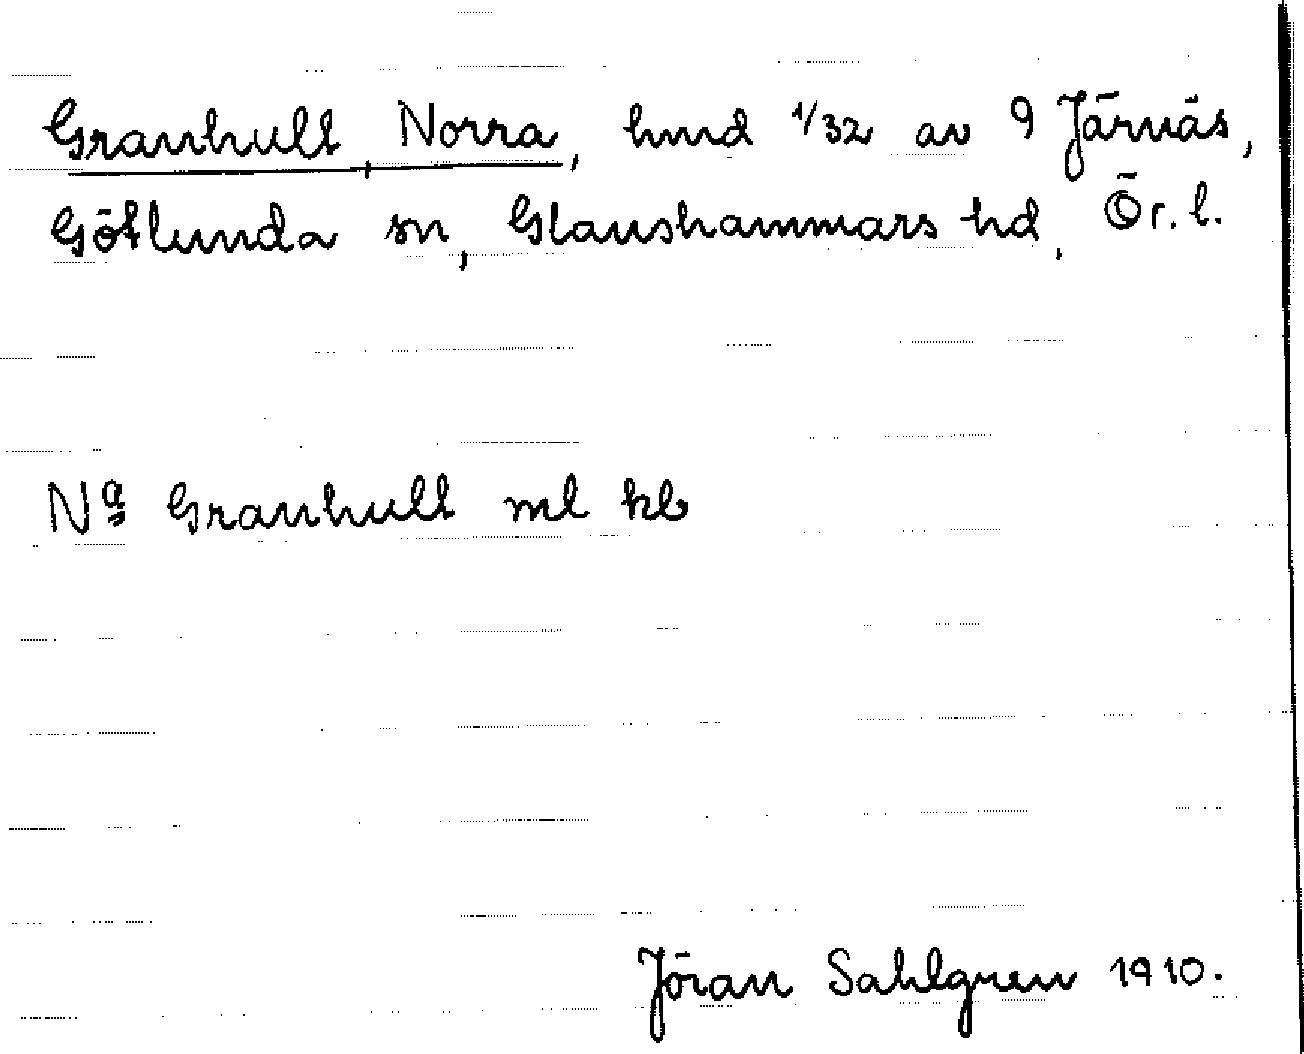 Granhult, Norra, hmd 1/32 av 9 Järnäs,
Götlunda sn, Glanshammars hd, Ör. l.
Na Granhult ml kb
Jöran Sahlgren 1910.